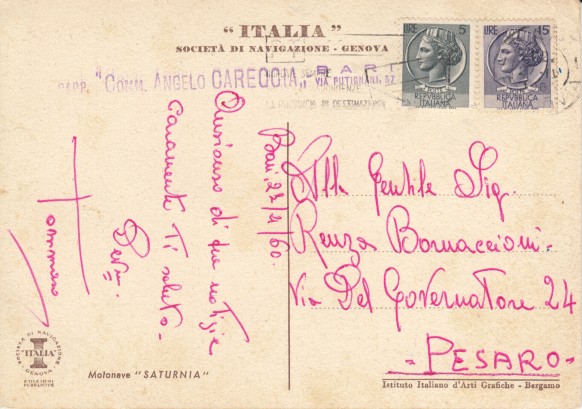 "ITALIA"
SOCIETÀ DI NAVIGAZIONE - GENOVA
RAPP. "COMM. ANGELO CAREGGIA, BARI
VIA PUTIGNANI, 97
DI DESTINAZIONE
LIRE 5
POSTE
REPVBBLICA
ITALIANA
LIRE 15
POSTE
REPVBBLICA
ITALIANA
Bari, 23/4/60.
Ansioso di tue notizie
Caramente Ti saluto.
Tommaso
Alla Gentile Sig.
Renza Bornaccioni.
Via Del Governatore 24
- PESARO -
SOCIETÀ DI NAVIGAZIONE
"ITALIA"
GENOVA
Motonave "SATURNIA"
Istituto Italiano d'Arti Grafiche - Bergamo